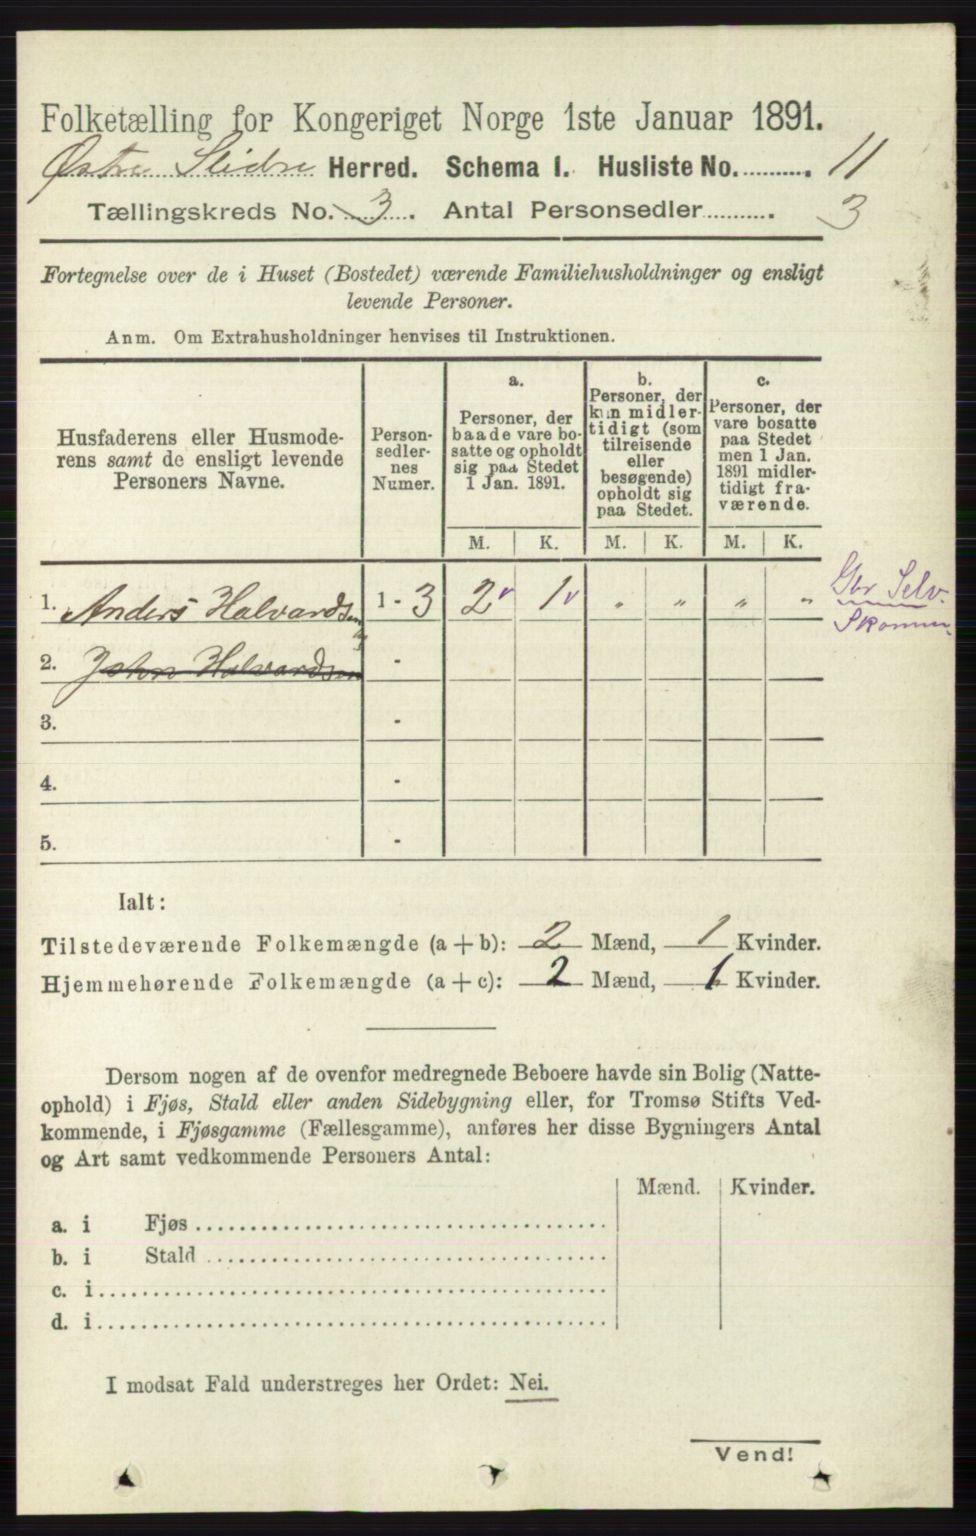 Folketælling for Kongeriget Norge 1ste Januar 1891.
Østre Slidre Herred. Schema I. Husliste No. 11
Tællingskreds No. 3. Antal Personsedler 3
Fortegnelse over de i Huset (Bostedet) værende Familiehusholdninger og ensligt
levende Personer.
Anm. Om Extrahusholdninger henvises til Instruktionen.
Husfaderens eller Husmode-
rens samt de ensligt levende
Personers Navne.
Person-
sedler-
nes
Numer.
a.
Personer, der
baade vare bo-
satte og opholdt
sig paa Stedet
1 Jan. 1891.
b.
Personer, der
kun midler-
tidigt (som
tilreisende
eller
besøgende)
opholdt sig
paa Stedet.
c.
Personer, der
vare bosatte
paa Stedet
men 1 Jan.
1891 midler-
tidigt fra-
værende.
M. K. M. K. M. K.
1. Anders Halvardsen 1 - 3 2 1 „ „ „ „
Gbr Selv.
2. John Halvardsen -
3. -
4. -
5. -
Ialt:
Tilstedeværende Folkemængde (a + b): 2 Mænd, 1 Kvinder.
Hjemmehørende Folkemængde (a + c): 2 Mænd, 1 Kvinder.
Dersom nogen af de ovenfor medregnede Beboere havde sin Bolig (Natte-
ophold) i Fjøs, Stald eller anden Sidebygning eller, for Tromsø Stifts Ved-
kommende, i Fjøsgamme (Fællesgamme), anføres her disse Bygningers Antal
og Art samt vedkommende Personers Antal:
Mænd. Kvinder.
a. i Fjøs
b. i Stald
c. i
d. i
I modsat Fald understreges her Ordet: Nei.
Vend!